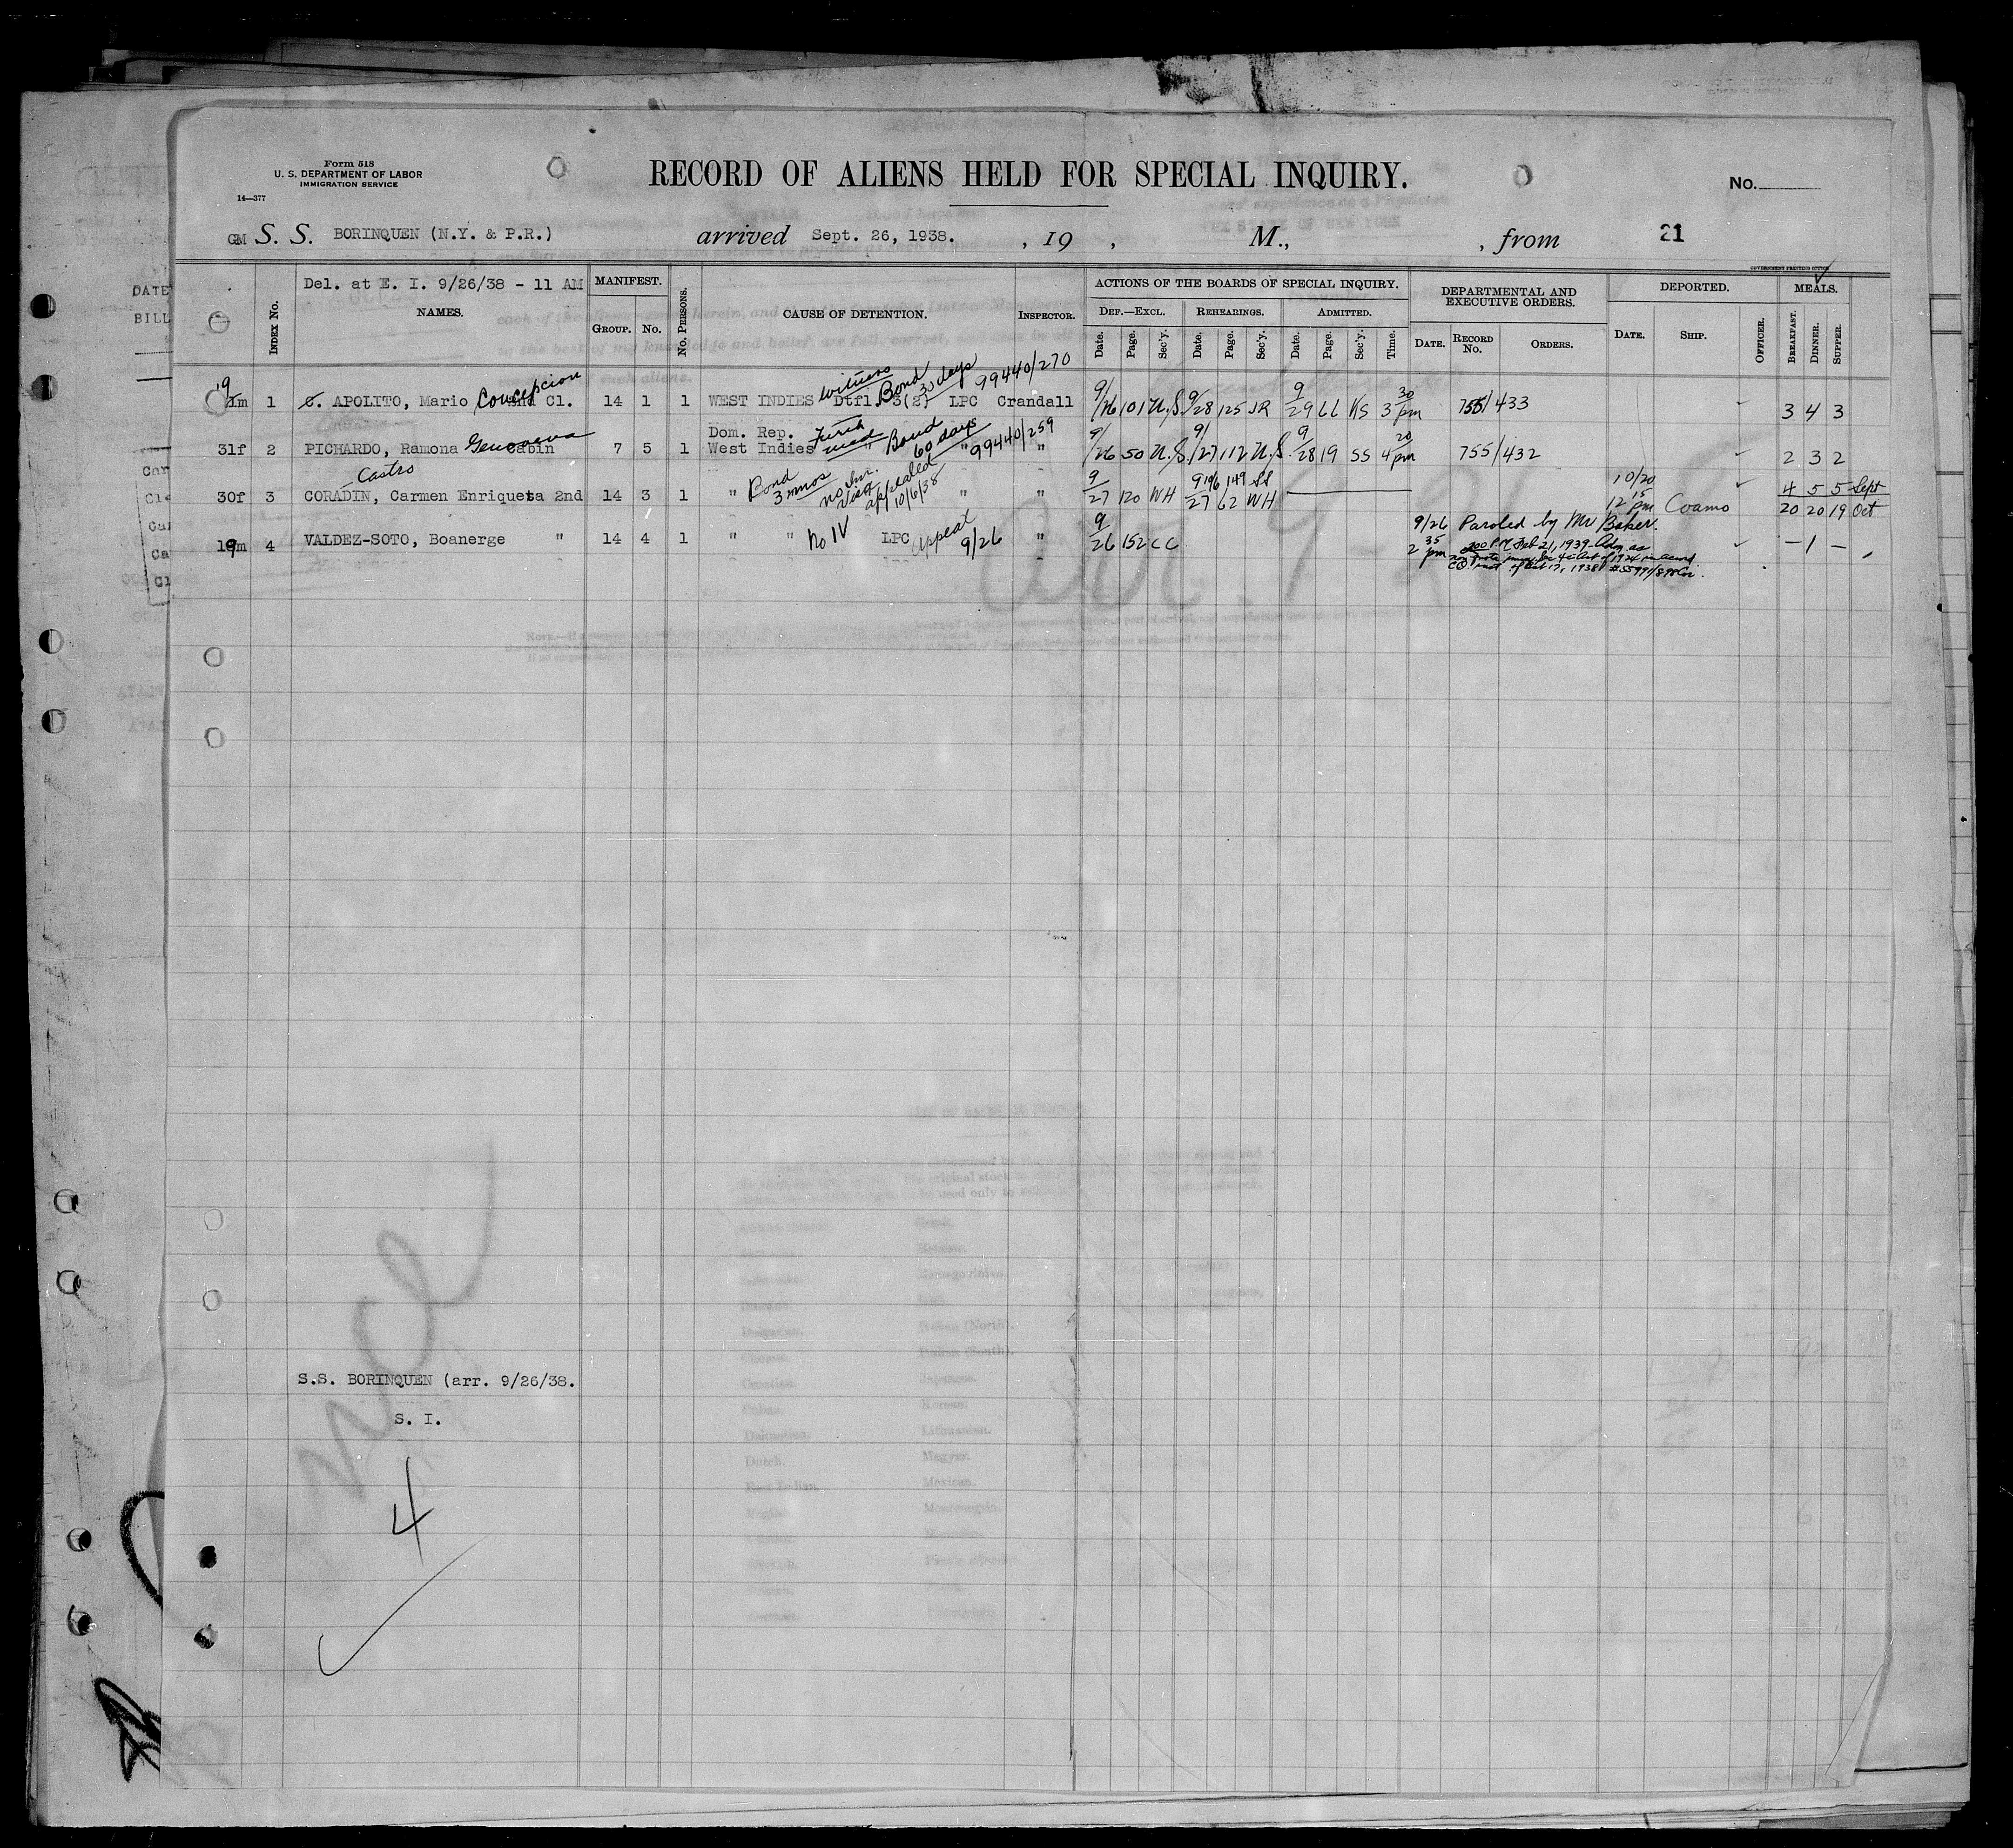 Form 518
U. S. DEPARTMENT OF LABOR
IMMIGRATION SERVICE
14—377
RECORD OF ALIENS HELD FOR SPECIAL INQUIRY.
No.
GM S. S. BORINQUEN (N.Y. & P.R.) arrived Sept. 26, 1938. , 19 , M., , from 21
GOVERNMENT PRINTING OFFICE
DATE
BILL
Del. at E. I. 9/26/38 - 11 AM
INDEX No. NAMES. MANIFEST. GROUP. No. No. PERSONS. CAUSE OF DETENTION. INSPECTOR.
ACTIONS OF THE BOARDS OF SPECIAL INQUIRY.
DEF.—EXCL. REHEARINGS. ADMITTED.
Date. Page. Sec'y. Date. Page. Sec'y. Date. Page. Sec'y. Time.
DEPARTMENTAL AND EXECUTIVE ORDERS.
DATE. RECORD No. ORDERS.
DEPORTED.
DATE. SHIP. OFFICER.
MEALS.
BREAKFAST. DINNER. SUPPER.
witness Bond 30 days 99440/270
19m 1 APOLITO, Mario Concepcion 2nd Cl. 14 1 1 WEST INDIES Dtfl. 3(2) LPC Crandall 9/26 101 N.S. 9/28 125 JR 9/29 66 KS 3 30 pm 755/433 3 4 3
Dom. Rep. Bond 60 days 99440/259
31f 2 PICHARDO, Ramona Genoveva Cabin 7 5 1 West Indies " " " 9/26 50 N.S. 9/27 112 N.S. 9/28 19 SS 4 20 pm 755/432 2 3 2
Castro
30f 3 CORADIN, Carmen Enriqueta 2nd 14 3 1 " Bond 3 mos no Im. Visa appealed 10/6/38 " " 9/27 120 WH 9/27 62 WH 149 SS 10/20 12 15 pm Coamo 4 5 5 Sept
20 20 19 Oct
19m 4 VALDEZ-SOTO, Boanerge " 14 4 1 " " No IV LPC Appeal 9/26 " 9/26 152 CC 9/26 2 35 pm Paroled by Mr Baker. — 1 —
200 P.M. Feb 21, 1939. Adm as
non quota imm. Sec 4 Act of 1924 in accord
CO inst of Oct 17, 1938
Car
Cl
Car
Ca
Cl
S.S. BORINQUEN (arr. 9/26/38.
S. I.
4